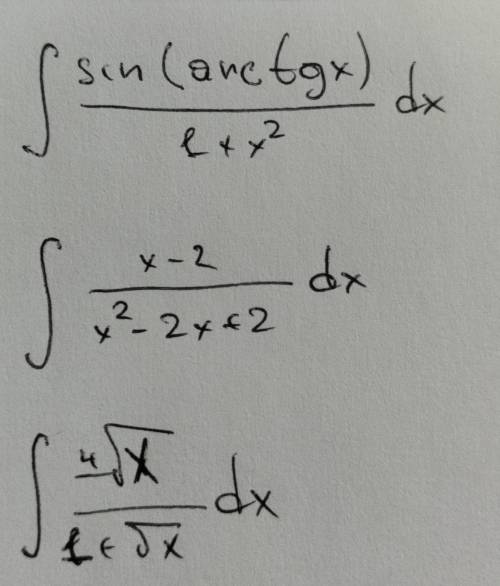 ∫ sin(arctgx) / 1 + x² dx
∫ x - 2 / x² - 2x + 2 dx
∫ ⁴√x / 1 + √x dx